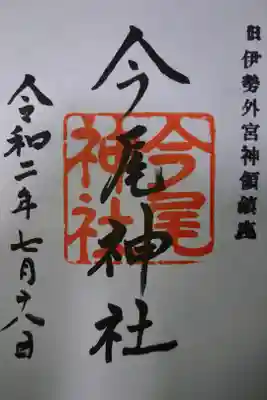 旧伊勢外宮神領鎮座
今尾神社
今尾神社
令和二年七月十八日